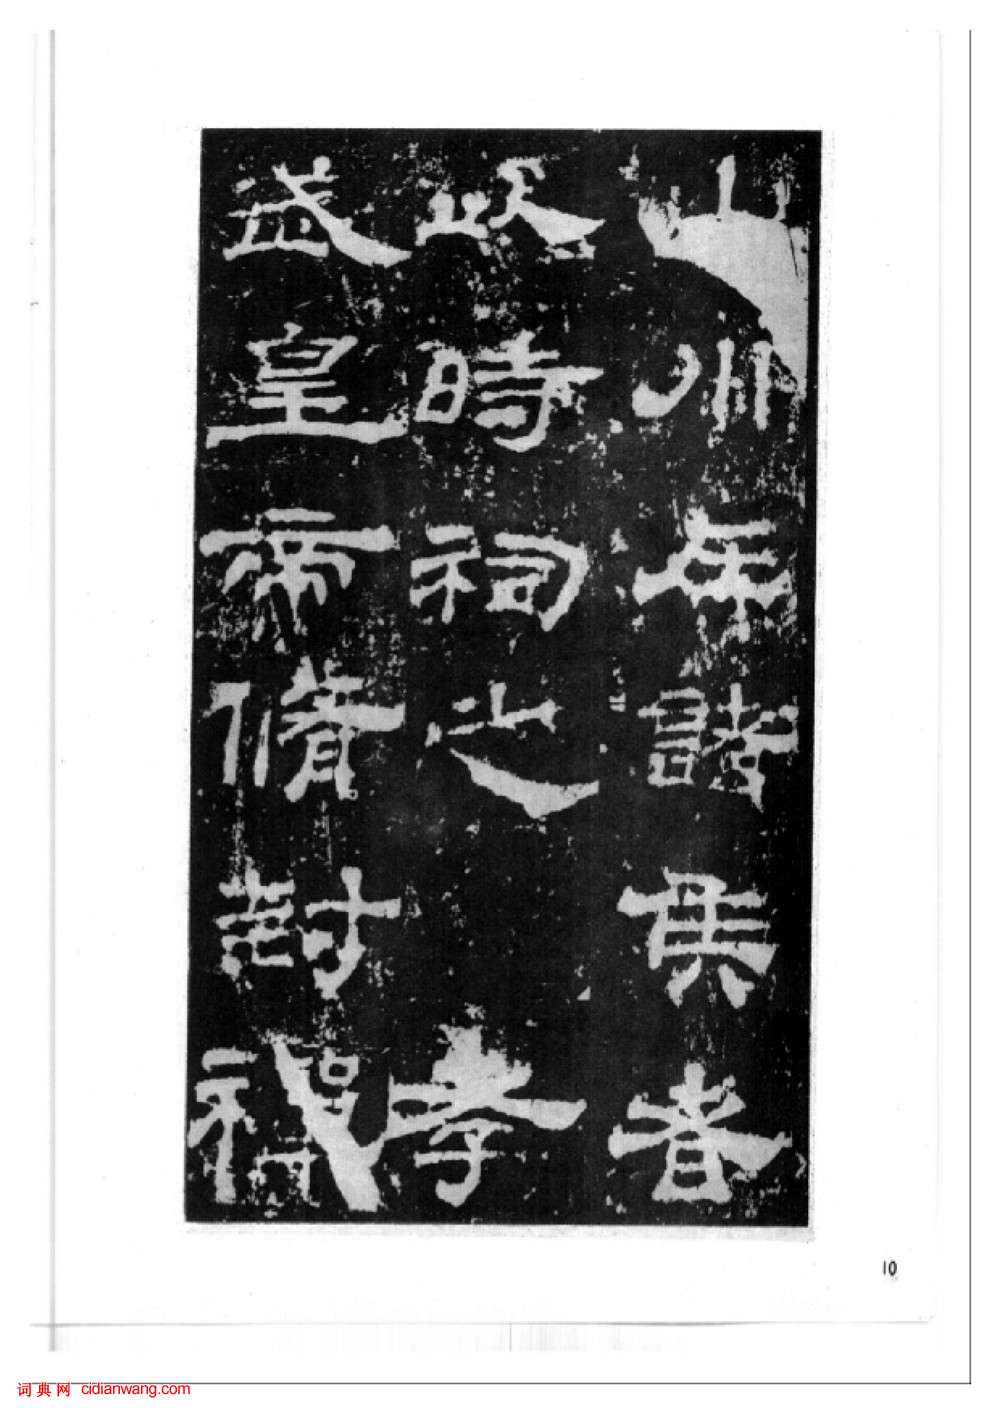 山川在諸侯者
以時祠之孝
武皇帝脩封禪
10
词典网 cidianwang.com